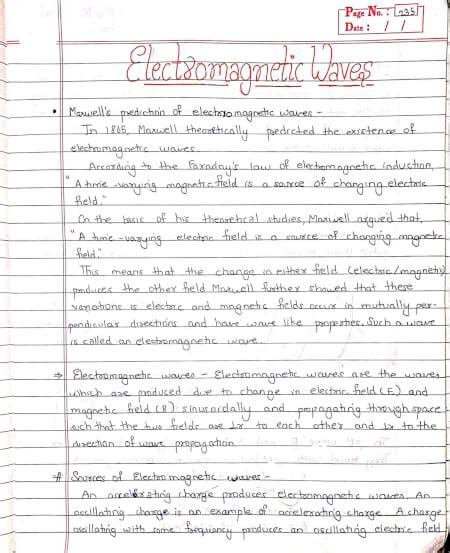 Page No. : 235
Date : / /
Electromagnetic Waves
• Maxwell's prediction of electromagnetic waves -
In 1865, Maxwell theoretically pedicted the existence of
electromagnetic waves.
According to the Faraday's law of electromagnetic induction,
"A time-varying magnetic field is a source of changing electric
field."
On the basis of his theoretical studies, Maxwell argued that,
"A time-varying electric field is a source of changing magnetic
field."
This means that the change in either field (electric/magnetic)
produces the other field Maxwell further showed that these
variations is electric and magnetic fields occur in mutually per-
pendicular directions and have wave like properties. Such a wave
is called an electromagnetic wave.
⇒ Electromagnetic waves - Electromagnetic waves are the waves
which are produced due to change in electric field (E) and
magnetic field (B) sinusoidally and propagating through space
such that the two fields are ⊥r to each other and ⊥r to the
direction of wave propagation.
Sources of Electromagnetic waves -
An accelerating charge produces electromagnetic waves. An
oscillating charge is an example of accelerating charge. A charge
oscillating with some frequency produces an oscillating electric field